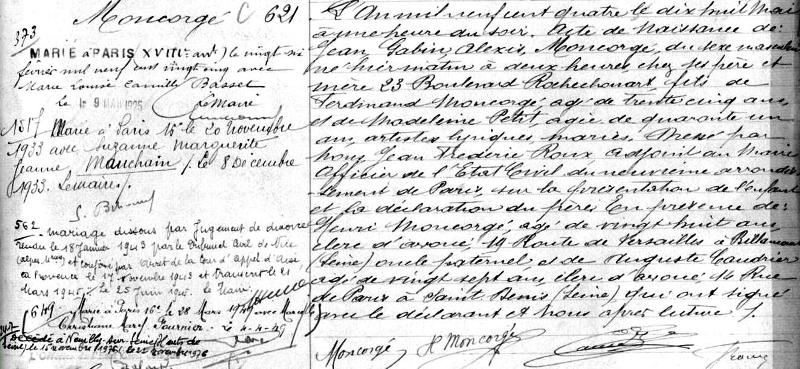 Moncorgé C 621
373
MARIÉ à PARIS XVIII art) le vingt six
février mil neuf cent vingt cinq avec
Marie Louise Camille Basset
le 9 MAR 1925 Le Maire
1517 Marié à Paris 15e le 20 novembre
1933 avec Suzanne Marguerite
Jeanne Mauchain /. le 8 Décembre
1933. Le maire /.
562 - mariage dissous par Jugement de divorce
rendu le 18 Janvier 1943 par le Tribunal Civil de Nice
et confirmé par arrêt de la Cour d'appel d'Aix
en Provence le 17 novembre 1943 et transcrit le 21
mars 1945. le 25 Juin 1945. Le Maire
649 Marié à Paris 16e le 28 Mars 1949 avec Marcelle
Christiane Marie Fournier. le 4-4-49
Décédé à Neuilly-sur-Seine (Hauts de
Seine) le 15 novembre 1976 / le 22 novembre 1976
L'An mil neuf cent quatre le dix huit Mai
à une heure du soir. Acte de Naissance de:
Jean Gabin Alexis Moncorgé, du sexe masculin
né hier matin à deux heures, chez ses père et
mère 23 Boulevard Rochechouart, fils de
Ferdinand Moncorgé, agé de trente cinq ans
et de Madeleine Petit, agée de quarante un
ans, artistes lyriques, mariés. Dressé par
Nous Jean Frédéric Roux adjoint au Maire
Officier de l'Etat Civil du neuvième arrondis-
sement de Paris, sur la présentation de l'enfant
et la déclaration du père. En présence de:
Henri Moncorgé, agé de vingt huit ans
clerc d'avoué, 19 Route de Versailles à Billancourt
(Seine) oncle paternel et de Auguste
agé de vingt sept ans, clerc d'avoué, 16 Rue
de Paris à Saint Denis (Seine) Qui ont signé
avec le déclarant et Nous après lecture /.
Moncorgé H Moncorgé